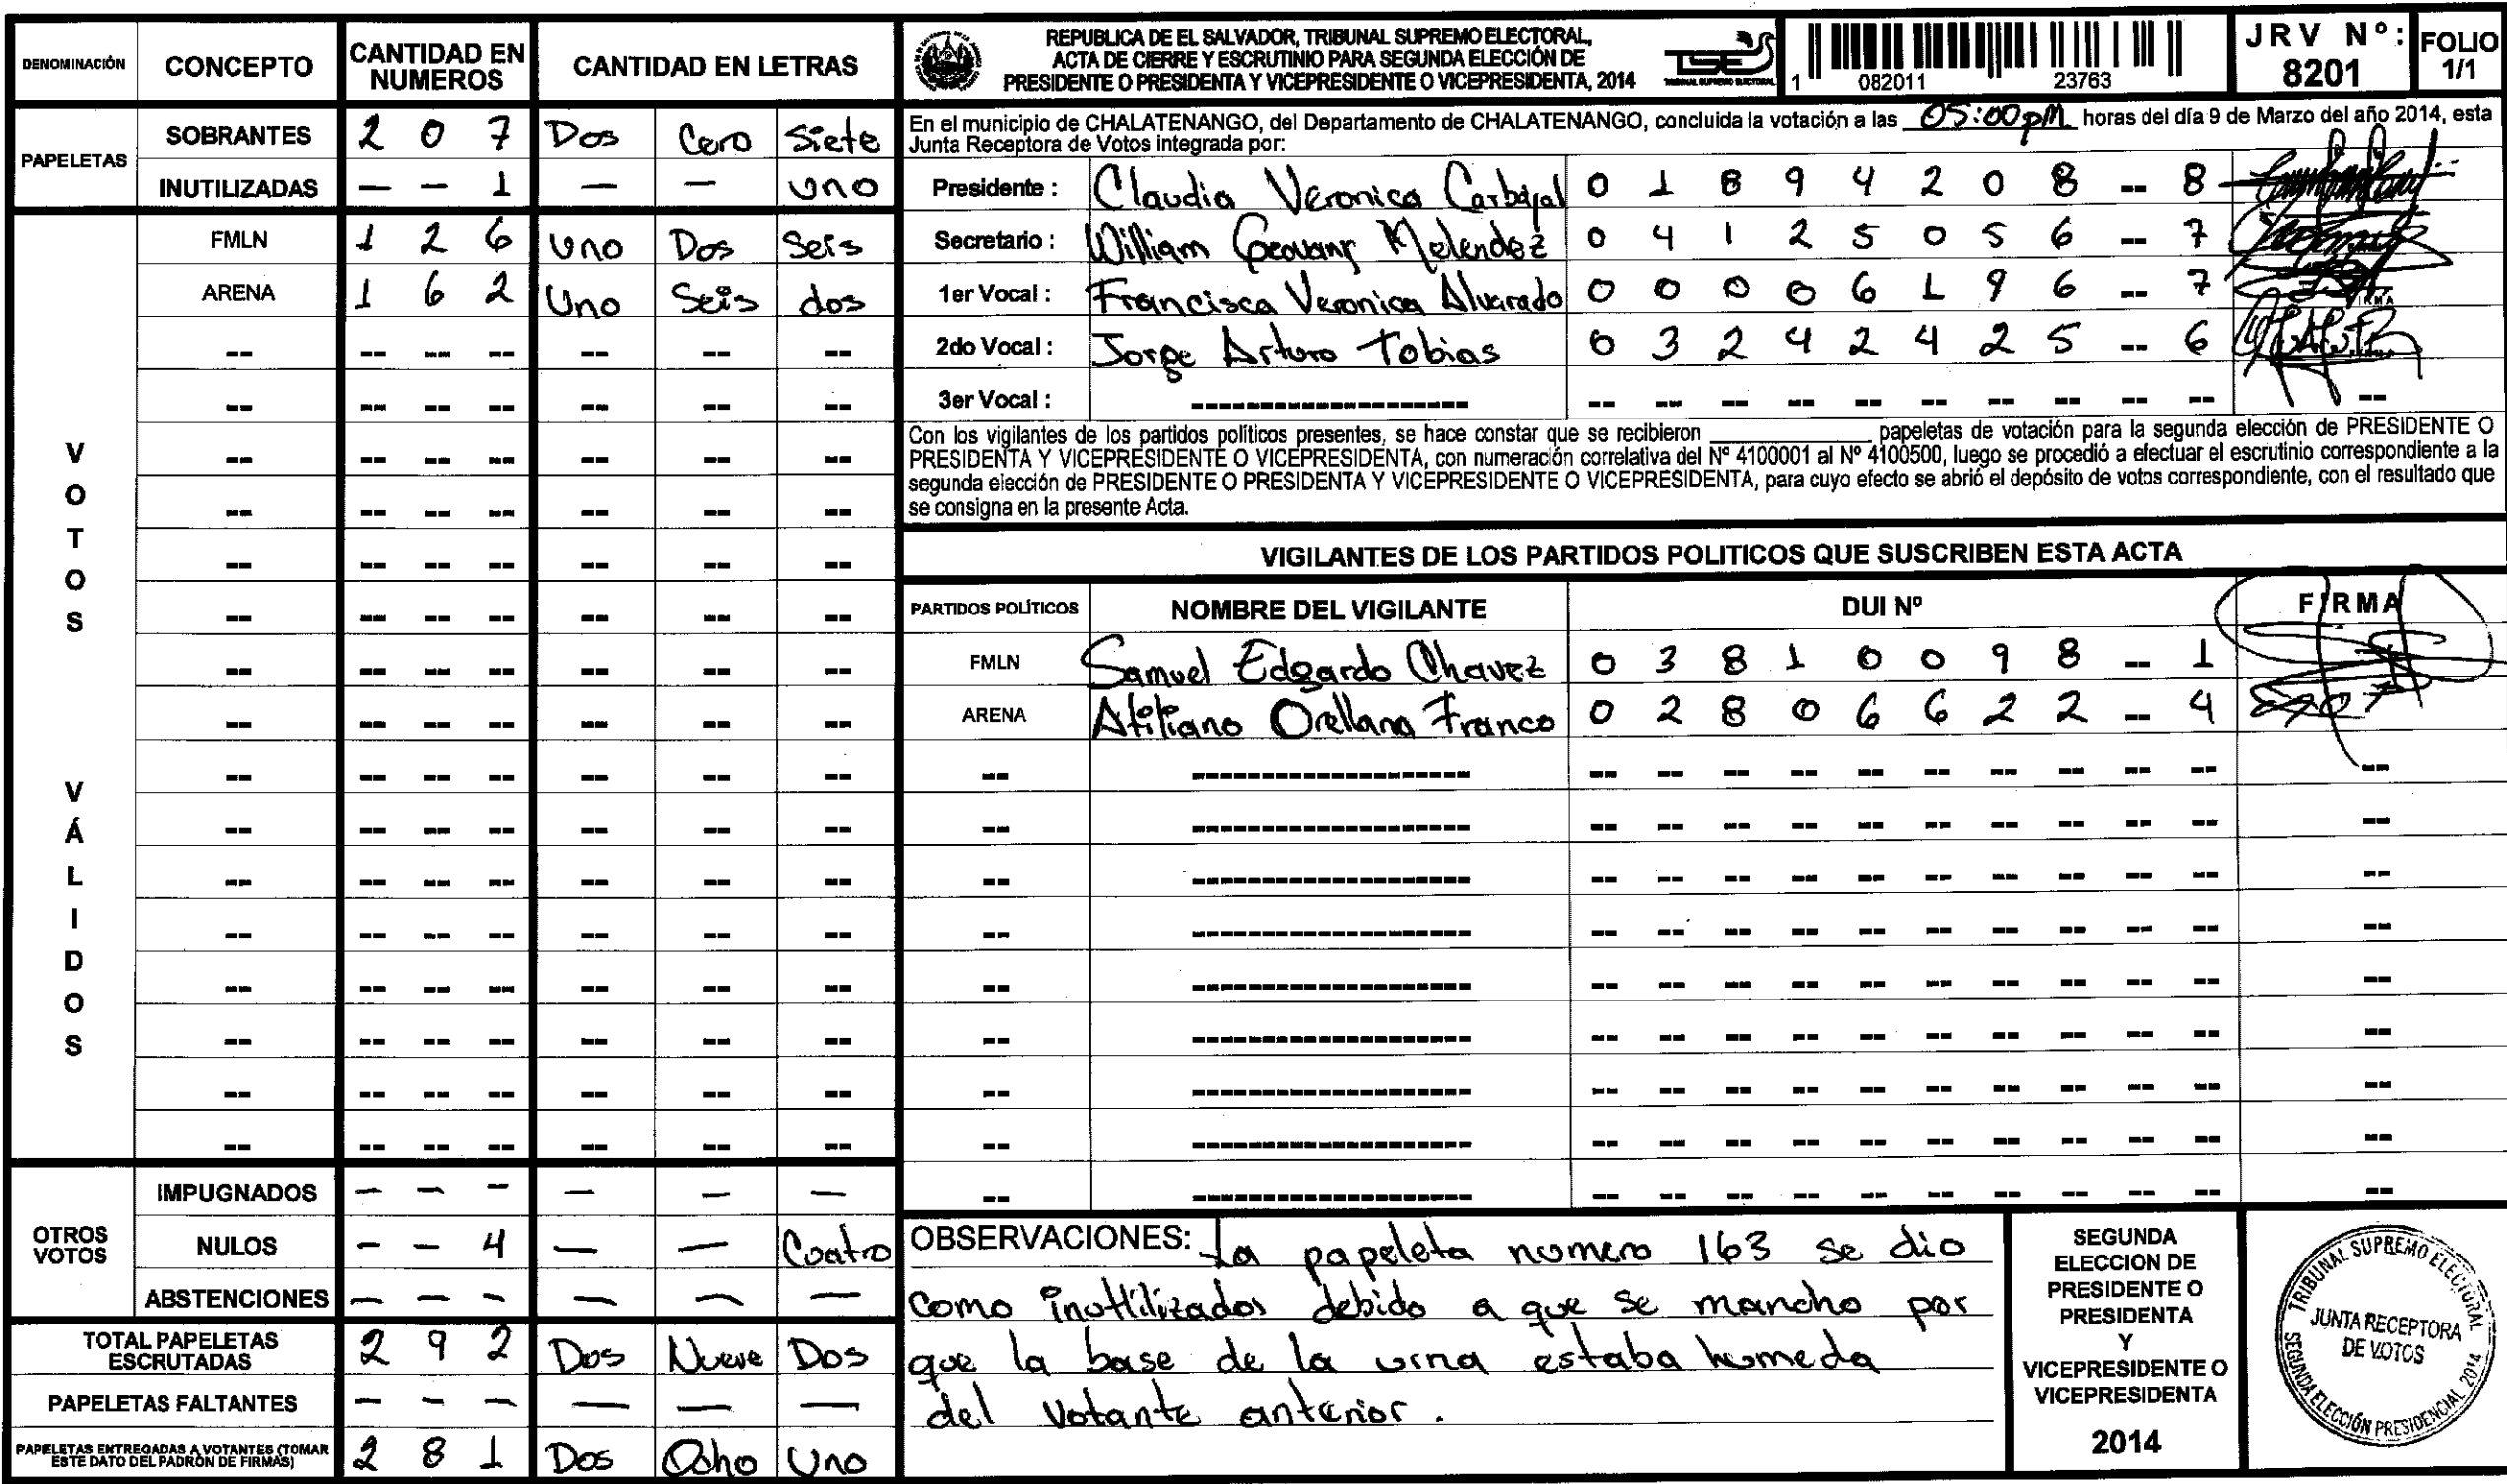 DENOMINACIÓN CONCEPTO CANTIDAD EN NUMEROS CANTIDAD EN LETRAS
PAPELETAS
SOBRANTES 2 0 7 Dos Cero Siete
INUTILIZADAS — — 1 — — uno
VOTOS VÁLIDOS
FMLN 1 2 6 uno Dos Seis
ARENA 1 6 2 Uno Seis dos
OTROS VOTOS
IMPUGNADOS — — — — — —
NULOS — — 4 — — Cuatro
ABSTENCIONES — — — — — —
TOTAL PAPELETAS ESCRUTADAS 2 9 2 Dos Nueve Dos
PAPELETAS FALTANTES — — — — — —
PAPELETAS ENTREGADAS A VOTANTES (TOMAR ESTE DATO DEL PADRÓN DE FIRMAS) 2 8 1 Dos Ocho Uno
REPUBLICA DE EL SALVADOR, TRIBUNAL SUPREMO ELECTORAL,
ACTA DE CIERRE Y ESCRUTINIO PARA SEGUNDA ELECCIÓN DE
PRESIDENTE O PRESIDENTA Y VICEPRESIDENTE O VICEPRESIDENTA, 2014
TSE
TRIBUNAL SUPREMO ELECTORAL
1 082011 23763
JRV Nº: 8201
FOLIO 1/1
En el municipio de CHALATENANGO, del Departamento de CHALATENANGO, concluida la votación a las 05:00 pm horas del día 9 de Marzo del año 2014, esta
Junta Receptora de Votos integrada por:
Presidente : Claudia Veronica Carbajal 0 1 8 9 4 2 0 8 -- 8
Secretario : William Geovany Melendez 0 4 1 2 5 0 5 6 -- 7
1er Vocal : Francisca Veronica Alvarado 0 0 0 0 6 1 9 6 -- 7
2do Vocal : Jorge Arturo Tobias 0 3 2 4 2 4 2 5 -- 6
3er Vocal :
Con los vigilantes de los partidos políticos presentes, se hace constar que se recibieron ____________ papeletas de votación para la segunda elección de PRESIDENTE O
PRESIDENTA Y VICEPRESIDENTE O VICEPRESIDENTA, con numeración correlativa del Nº 4100001 al Nº 4100500, luego se procedió a efectuar el escrutinio correspondiente a la
segunda elección de PRESIDENTE O PRESIDENTA Y VICEPRESIDENTE O VICEPRESIDENTA, para cuyo efecto se abrió el depósito de votos correspondiente, con el resultado que
se consigna en la presente Acta.
VIGILANTES DE LOS PARTIDOS POLITICOS QUE SUSCRIBEN ESTA ACTA
PARTIDOS POLÍTICOS NOMBRE DEL VIGILANTE DUI Nº FIRMA
FMLN Samuel Edgardo Chavez 0 3 8 1 0 0 9 8 -- 1
ARENA Orellana Franco 0 2 8 0 6 6 2 2 -- 4
OBSERVACIONES: La papeleta numero 163 se dio
como inutilizados debido a que se mancho por
que la base de la urna estaba humeda
del votante anterior.
SEGUNDA
ELECCION DE
PRESIDENTE O
PRESIDENTA
Y
VICEPRESIDENTE O
VICEPRESIDENTA
2014
TRIBUNAL SUPREMO ELECTORAL
JUNTA RECEPTORA
DE VOTOS
SEGUNDA ELECCIÓN PRESIDENCIAL 2014